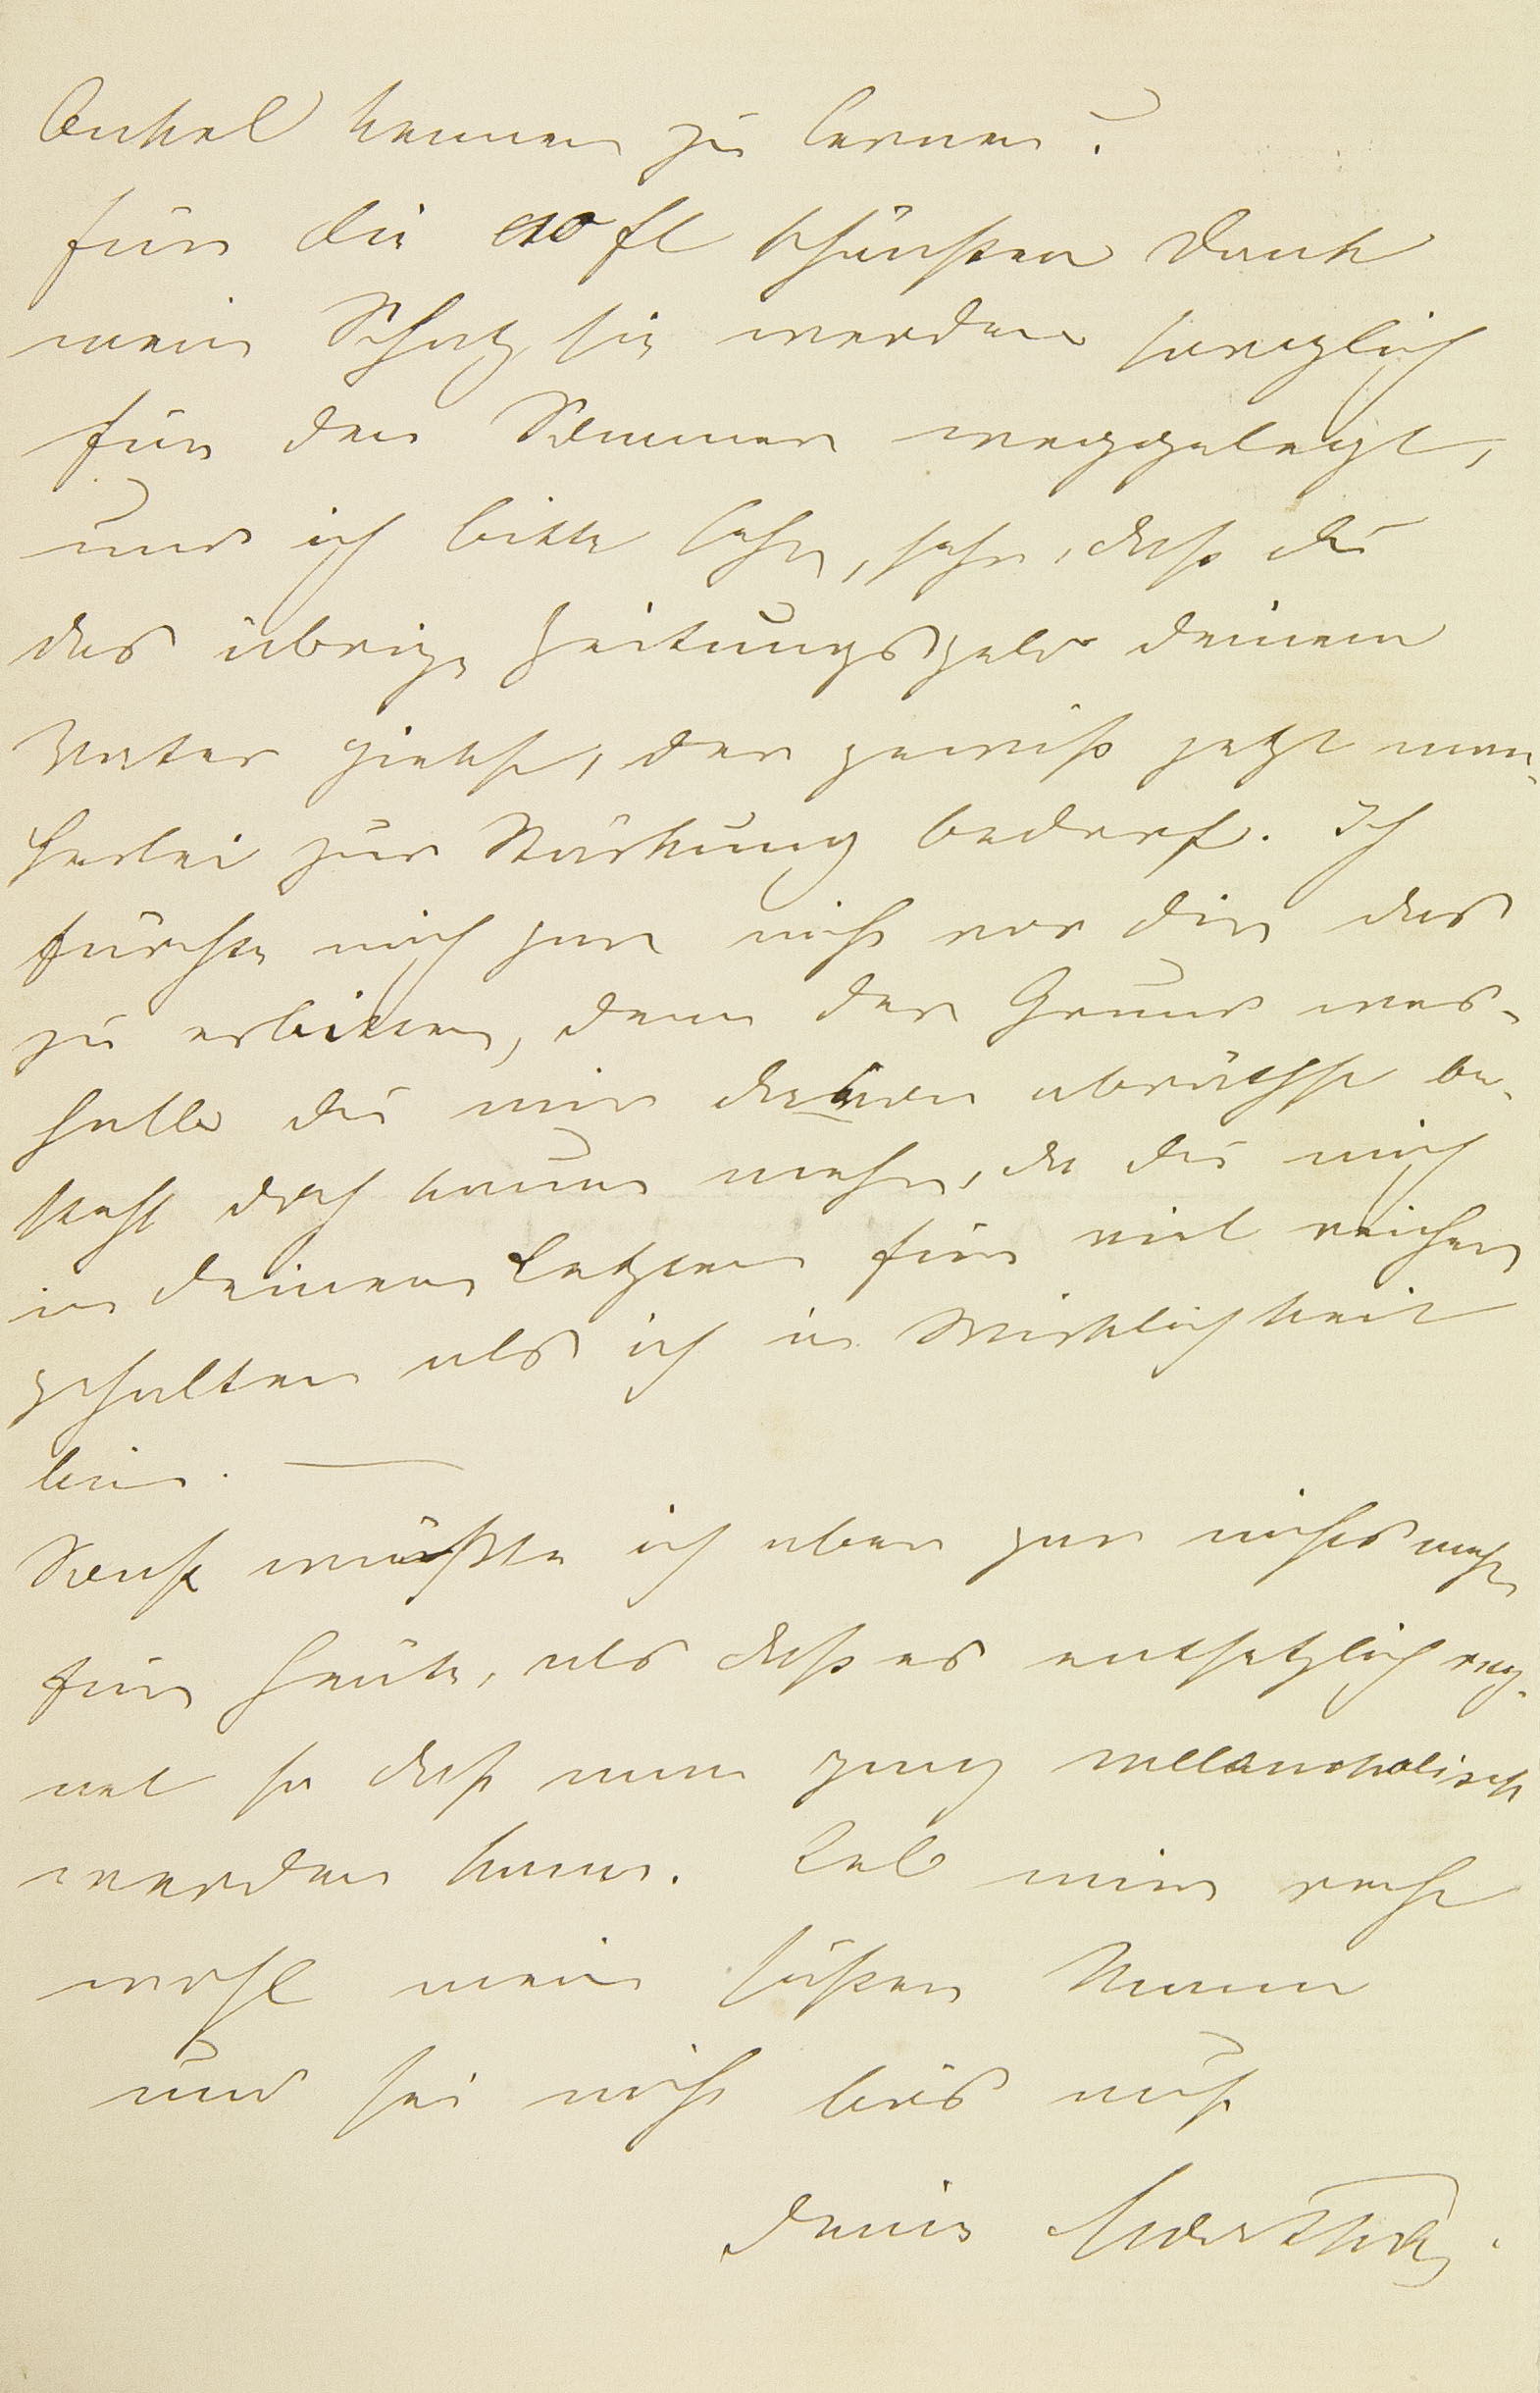 Onkel kennen zu lernen?
für die 10 fl schönsten Dank
mein Schatz sie werden sorglich
für den Sommer weggelegt,
und ich bitte sehr, sehr, daß du
das übrige Zeitungsgeld deinem
Vater giebst, der gewiß jetzt man-
cherlei zur Stärkung bedarf. Ich
fürchte mich gar nicht vor dir das
zu erbitten, denn der Grund wes-
halb du mir davon abräthst be-
steht doch kaum mehr, da du mich
in deinem Letzten für viel reicher
gehalten als ich in Wirklichkeit
bin. —
Sonst wüßte ich aber gar nichts mehr
für heute, als daß es entsetzlich reg-
net so daß man ganz melancholisch
werden kann. Leb mir recht
wohl mein süßer Mann
und sei nicht bös auf
deine Martha.